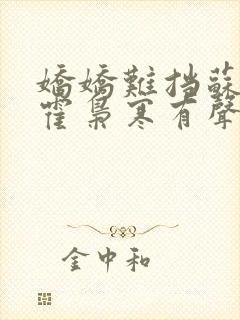 嬌嬌難擋蘇
霍梟寒有聲
金中和